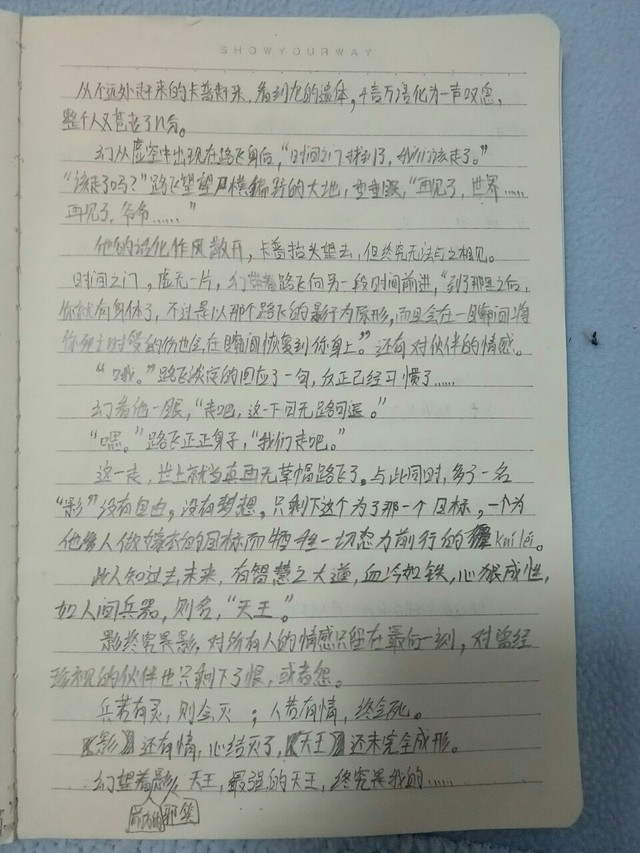 从不远处赶来的卡普赶来，看到龙的遗体，千言万语化为一声叹息，
整个人又苍老了几分。
幻从虚空中出现在路飞身后，“时间之门找到了，我们该走了。”
“该走了吗？”路飞望望满的大地，重重眠，“再见了，世界……
再见了，爷爷……”
他的话化作风散开，卡普抬头望去，但终究无法与之相见。
时间之门，虚无一片，幻带着路飞向另一段时间前进，“到了那里之后，
你就有身体了，不过是以那个路飞的影行为原形，而且会在一瞬间将
你死之时受的伤也会在瞬间恢复到你身上。”还有对伙伴的情感。
“哦。”路飞淡淡的回应了一句，反正已经习惯了……
幻看他一眼，“走吧，这一下可无路可返。”
“嗯。”路飞正正身子，“我们走吧。”
这一走，世上就当真再无草帽路飞了。与此同时，多了一名
“影”没有自由，没有梦想，只剩下这个为了那一个目标，一个为
他人做嫁衣的目标而牺牲一切忍力前行的 kuilei。
此人知过去未来，有智慧之大道，血冷如铁，心狠成性，
如人间兵器，则名，“天王”。
影终究是影，对所有人的情感只留在最后一刻，对曾经
珍视的伙伴也只剩下了恨，或者怨。
兵若有灵，则会灭；人若有情，终会死。
【影】还有情，心结灭了，【天王】还未完全成形。
幻望着影，天王，最强的天王，终究是我的……